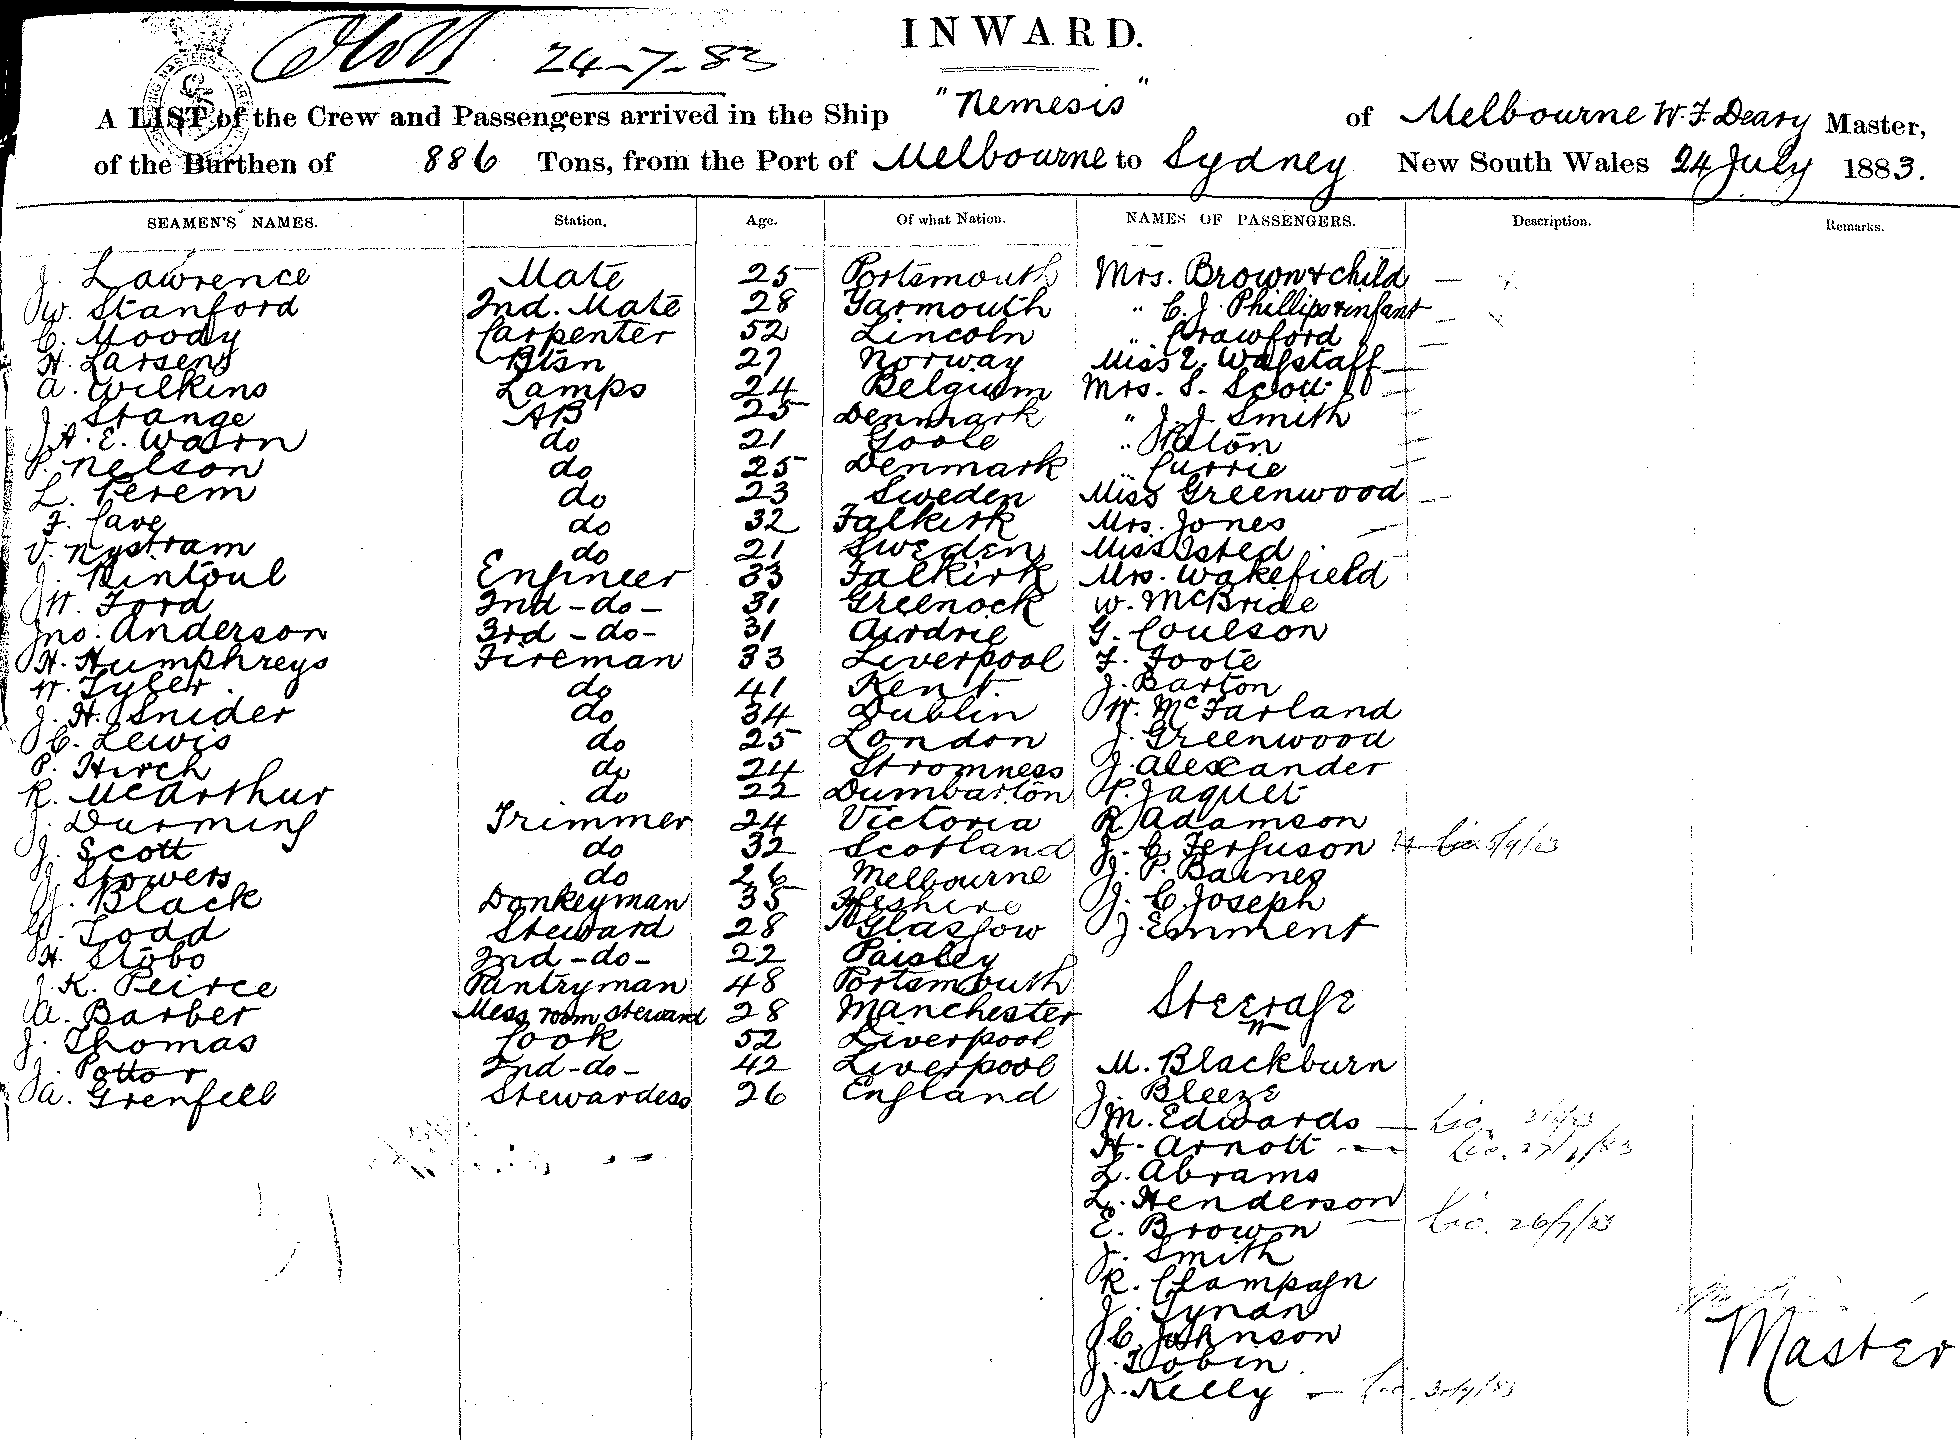 24-7-83
INWARD.
A LIST of the Crew and Passengers arrived in the Ship "Nemesis" of Melbourne W. F. Deary Master,
of the Burthen of 886 Tons, from the Port of Melbourne to Sydney New South Wales 24 July 1883.
SEAMEN'S NAMES. Station. Age. Of what Nation. NAMES OF PASSENGERS. Description. Remarks.
J. Lawrence Mate 25 Portsmouth Mrs. Brown & child
W. Stanford 2nd. Mate 28 Yarmouth " C. J. Phillips & infant
C. Moody Carpenter 52 Lincoln " Crawford
H. Larsens Btsn 27 Norway Miss E. Wagstaff
A. Wilkins Lamps 24 Belgium Mrs. S. Scott
J. Strange AB 25 Denmark " J. J. Smith
J. H. E. Watrn do 21 Goole " Paton
P. Nelson do 25 Denmark " Currie
L. Ferem do 23 Sweden Miss Greenwood
F. Cave do 32 Falkirk Mrs. Jones
V. Nystram do 21 Sweden Miss Isted
J. Rintoul Engineer 33 Falkirk Mrs. Wakefield
W. Ford 2nd - do - 31 Greenock W. McBride
Jno. Anderson 3rd - do - 31 Airdrie G. Coulson
H. Humphreys Fireman 33 Liverpool F. Foote
W. Tyler do 41 Kent. J. Barton
J. H. Snider do 34 Dublin W. McFarland
C. Lewis do 25 London J. Greenwood
P. Hirch do 24 Stromness J. Alexander
R. McArthur do 22 Dumbarton P. Jaquet
J. Durming Trimmer 24 Victoria R. Adamson
J. Scott do 32 Scotland J. C. Ferguson
J. Stowers do 26 Melbourne J. P. Baines
J. Black Donkeyman 35 Fifeshire J. C. Joseph
G. Todd Steward 28 Glasgow J. Emment
H. Stobo 2nd - do - 22 Paisley
J. K. Peirce Pantryman 48 Portsmouth
A. Barber Mess room steward 28 Manchester Steerage
J. Thomas Cook 52 Liverpool
J. Potter 2nd - do - 42 Liverpool M. Blackburn
A. Grenfell Stewardess 26 England J. Bleeze
M. Edwards
H. Arnott
L. Abrams
L. Henderson
E. Brown 26/7/83
J. Smith
R. Champagn
J. Tynan
C. Johnson
J. Tobin
J. Kelly
Master